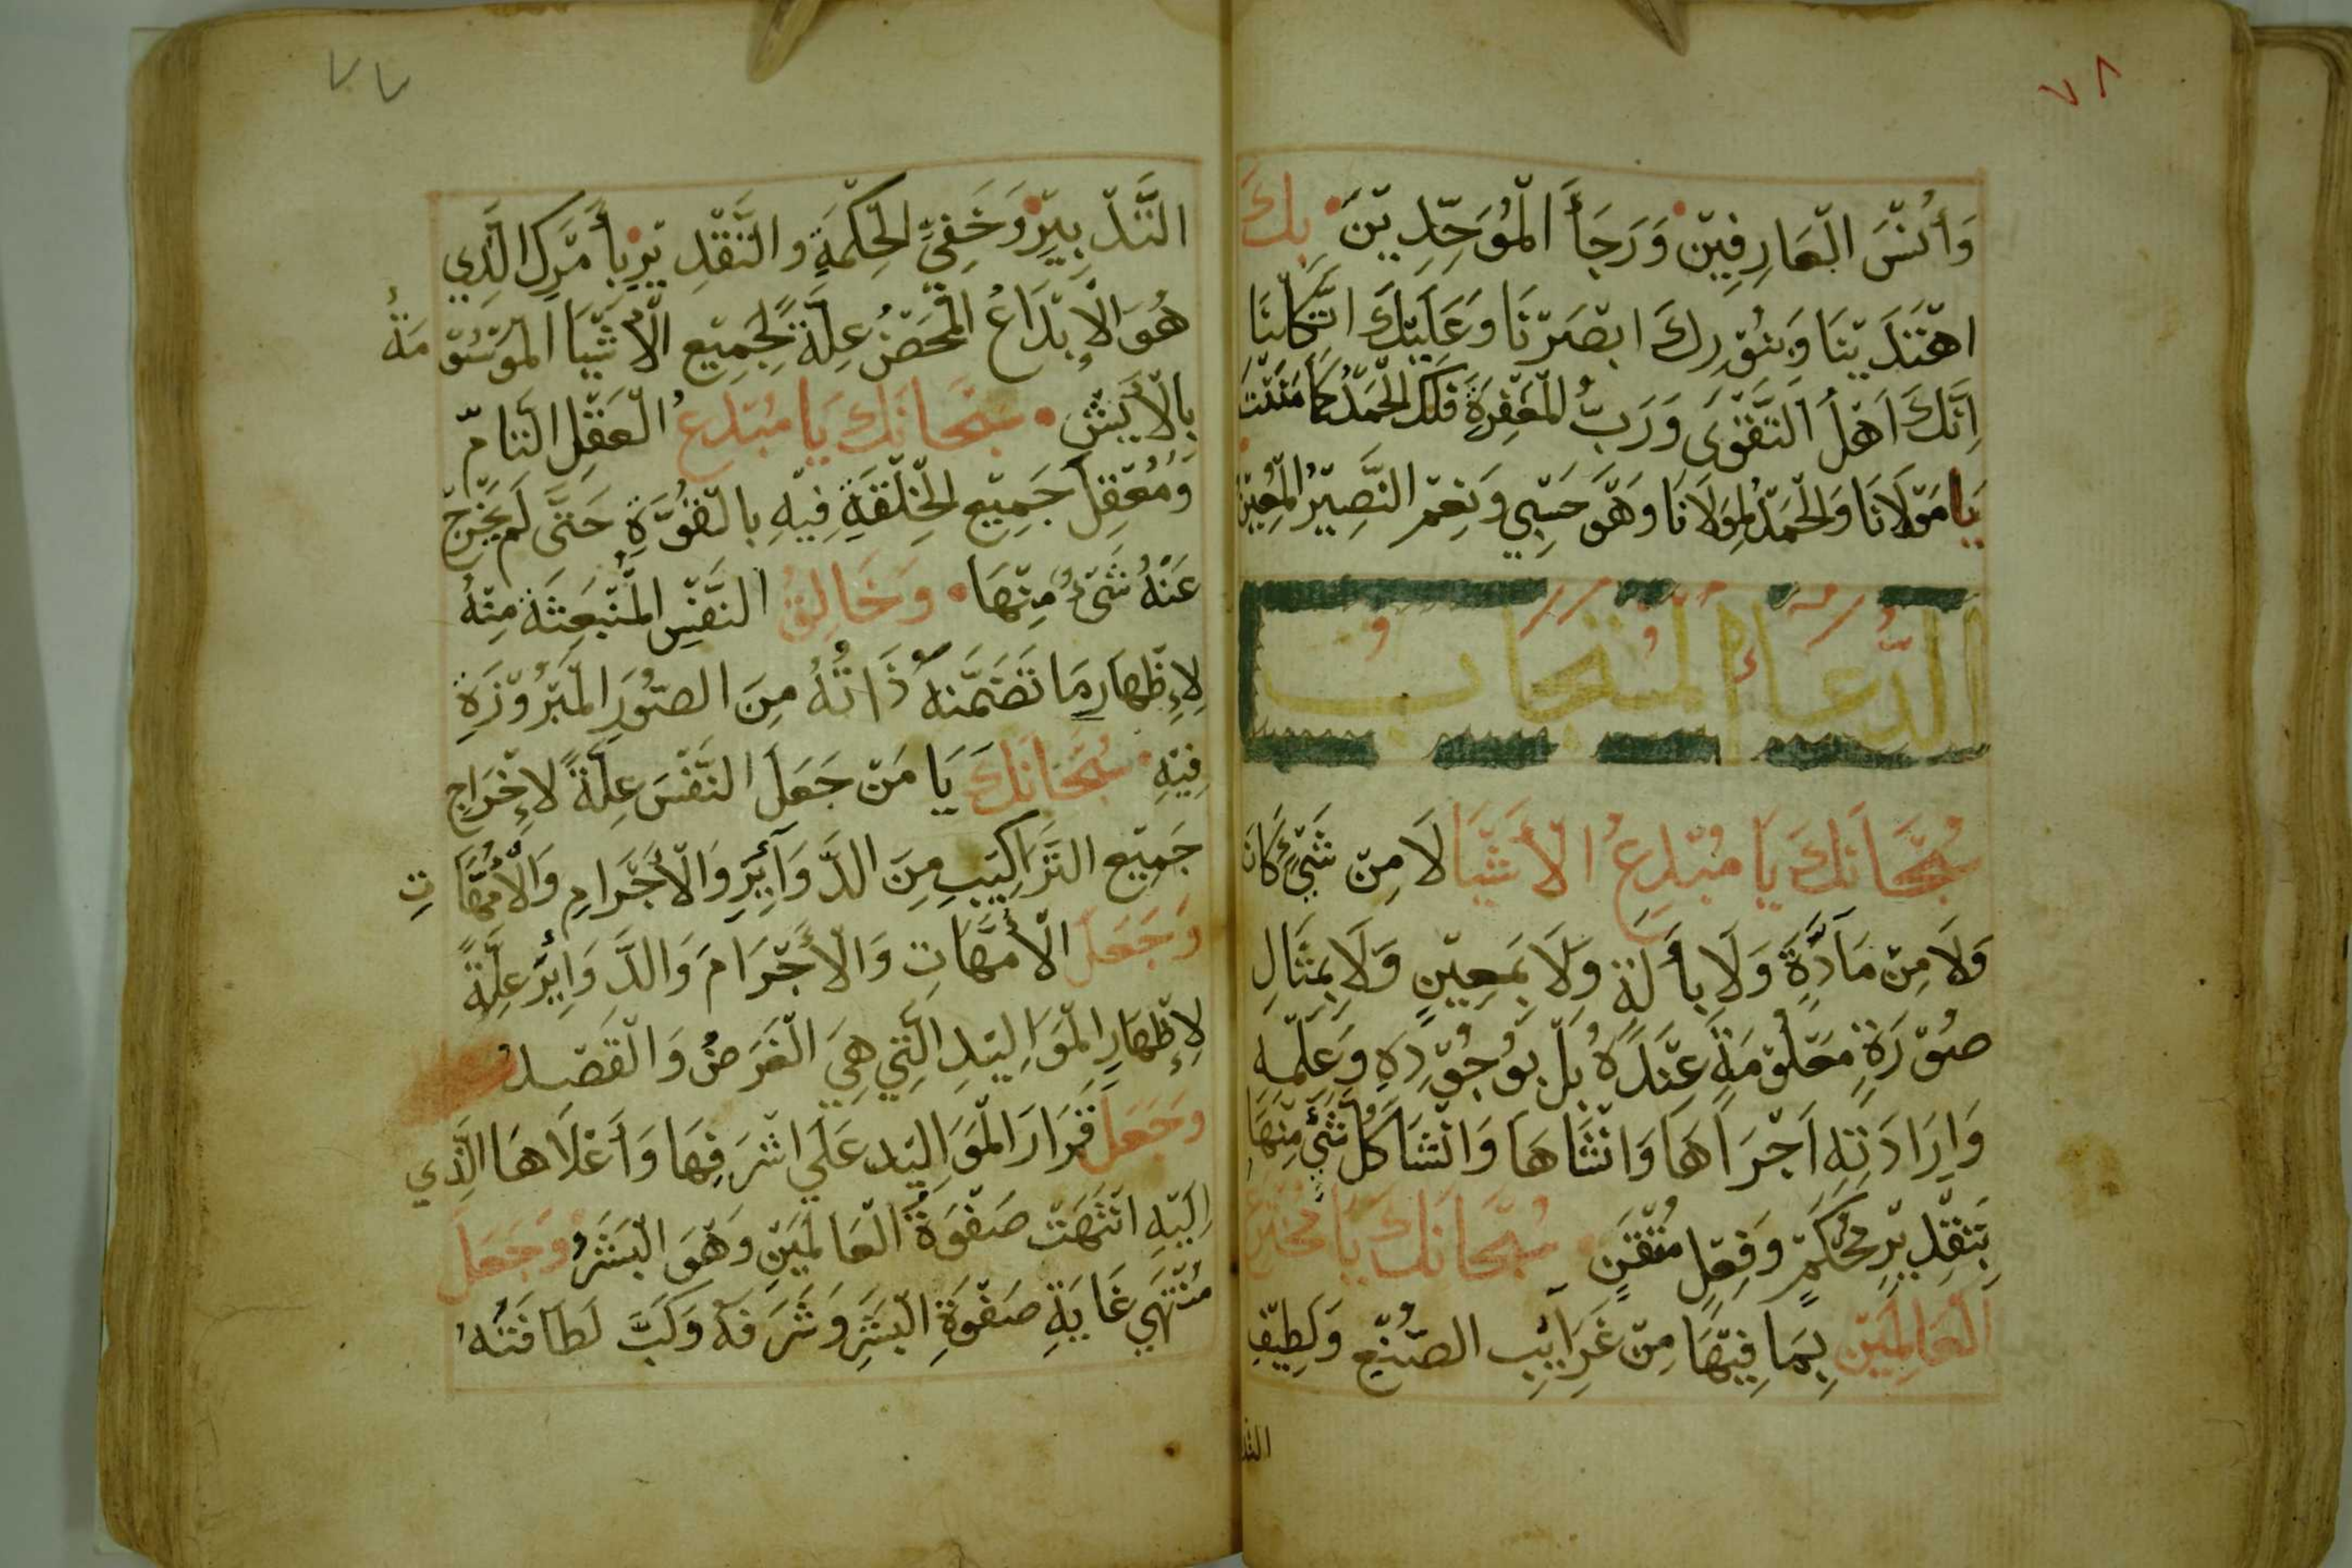 ٧٨
وَأُنْسَ الْعَارِفِيْنَ وَرَجَأَ الْمُوَحِّدِيْنَ بِكَ
اهْتَدَيْنَا وَبِنُوْرِكَ ابْصَرْنَا وَعَلَيْكَ اتَّكَلْنَا
اِنَّكَ اَهْلُ التَّقْوَى وَرَبُّ الْمَغْفِرَةِ فَلَكَ الْحَمْدُ كَمَا مَنَنْتَ
يَا مَوْلَانَا وَالْحَمْدُ لِمَوْلَانَا وَهُوَ حَسْبِي وَنِعْمَ النَّصِيْرُ الْمُعِيْنُ
الدُّعَاءُ الْمُسْتَجَابُ
سُبْحَانَكَ يَا مُبْدِعُ الْأَشْيَا لَا مِنْ شَيْءٍ كَانَ
وَلَا مِنْ مَادَّةٍ وَلَا بِأَلَةٍ وَلَا بِمَعِيْنٍ وَلَا بِمِثَالِ
صُوْرَةٍ مَعْلُوْمَةٍ عِنْدَهُ بَلْ بِوُجُوْدِهِ وَعِلْمِهِ
وَاِرَادَتِهِ اَجْرَاهَا وَانْشَاهَا وَانْشَا كُلَّ شَيْءٍ مِنْهَا
بِتَقْدِيْرٍ مُحْكَمٍ وَفِعْلٍ مُتْقَنٍ سُبْحَانَكَ يَا مُخْتَرِعَ
الْعَالَمِيْنَ بِمَا فِيْهَا مِنْ غَرَايِبِ الصُّنْعِ وَلَطِيْفِ
التد
٧٧
التَّدْبِيْرِ وَخَفِيِّ الْحِكْمَةِ وَالتَّقْدِيْرِ بِأَمْرِكَ الَّذِي
هُوَ الْإِبْدَاعُ الْمَحْضُ عِلَّةً لِجَمِيْعِ الْأَشْيَا الْمَوْسُوْمَةُ
بِالْأَيْسِ سُبْحَانَكَ يَا مُبْدِعُ الْعَقْلِ التَّامِّ
وَمُعْقِلَ جَمِيْعِ الْخِلْقَةِ فِيْهِ بِالْقُوَّةِ حَتَّى لَمْ يَخْرُجْ
عَنْهُ شَيْءٌ مِنْهَا وَخَالِقُ النَّفْسِ الْمُنْبَعِثَةِ مِنْهُ
لِإِظْهَارِ مَا تَضَمَّنَهُ ذَاتُهُ مِنَ الصُّوَرِ الْمَبْرُوْزَةِ
فِيْهِ سُبْحَانَكَ يَا مَنْ جَعَلَ النَّفْسَ عِلَّةً لِإِخْرَاجِ
جَمِيْعِ التَّرَاكِيْبِ مِنَ الدَّوَآئِرِ وَالْأَجْرَامِ وَالْأُمَّهَاتِ
وَجَعَلَ الْأُمَّهَاتِ وَالْأَجْرَامَ وَالدَّوَايِرَ عِلَّةً
لِإِظْهَارِ الْمَوَالِيْدِ الَّتِي هِيَ الْغَرَضُ وَالْقَصْدُ
وَجَعَلَ قَرَارَ الْمَوَالِيْدِ عَلَي اشْرَفِهَا وَأَعْلَاهَا الَّذِي
اِلَيْهِ انْتَهَتْ صَفْوَةُ الْعَالَمِيْنَ وَهُوَ الْبَشَرُ وَجَعَلَ
مُنْتَهَي غَايَةِ صَفْوَةِ الْبَشَرِ وَشَرَفَهُ لَطَافَتُهُ